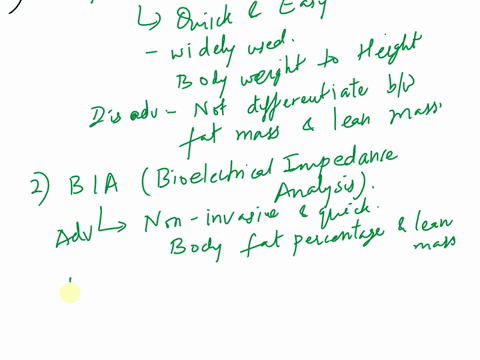 ↳ Quick & Easy
- widely used.
Body weight to Height
Disadv - Not differentiate b/w
fat mass & lean mass.
2) BIA (Bioelectrical Impedance
Analysis).
Adv ↳ Non-invasive & quick.
Body fat percentage & lean
mass